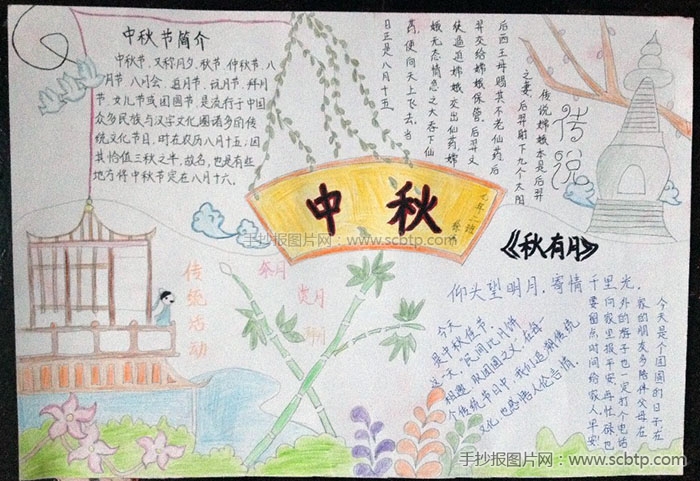 中秋节简介
中秋节，又称月夕、秋节、仲秋节、八
月节、八月会、追月节、玩月节、拜月
节、女儿节或团圆节，是流行于中国
众多民族与汉字文化圈诸多的传
统文化节日，时在农历八月十五；因
其恰值三秋之半，故名，也是有些
地方将中秋节定在八月十六。
传说
传说嫦娥本是后羿
之妻，后羿射下九个太阳
后西王母赐其不老仙药后
羿交给嫦娥保管，后羿又
嫦娥交出仙药，嫦
娥无态情急之大吞下仙
药，便向天上飞去，当
日正是八月十五
中秋
传统活动
祭月
赏月
拜月
手抄报图片网：www.scbtp.com
《秋有月》
仰头望明月，寄情千里光。
今天
是中秋佳节，
这一天“玩月吃月饼
相邀，取团圆之义”在每一
个传统节日中，我们追溯传统
文化，也感悟人伦合情。
今天是个团圆的日子在
家的朋友多陪伴父母在
外的游子也一定打个电话
向家里报平安，再忙碌也
要留点时间给家人。平安
手抄报图片网：www.scbtp.com